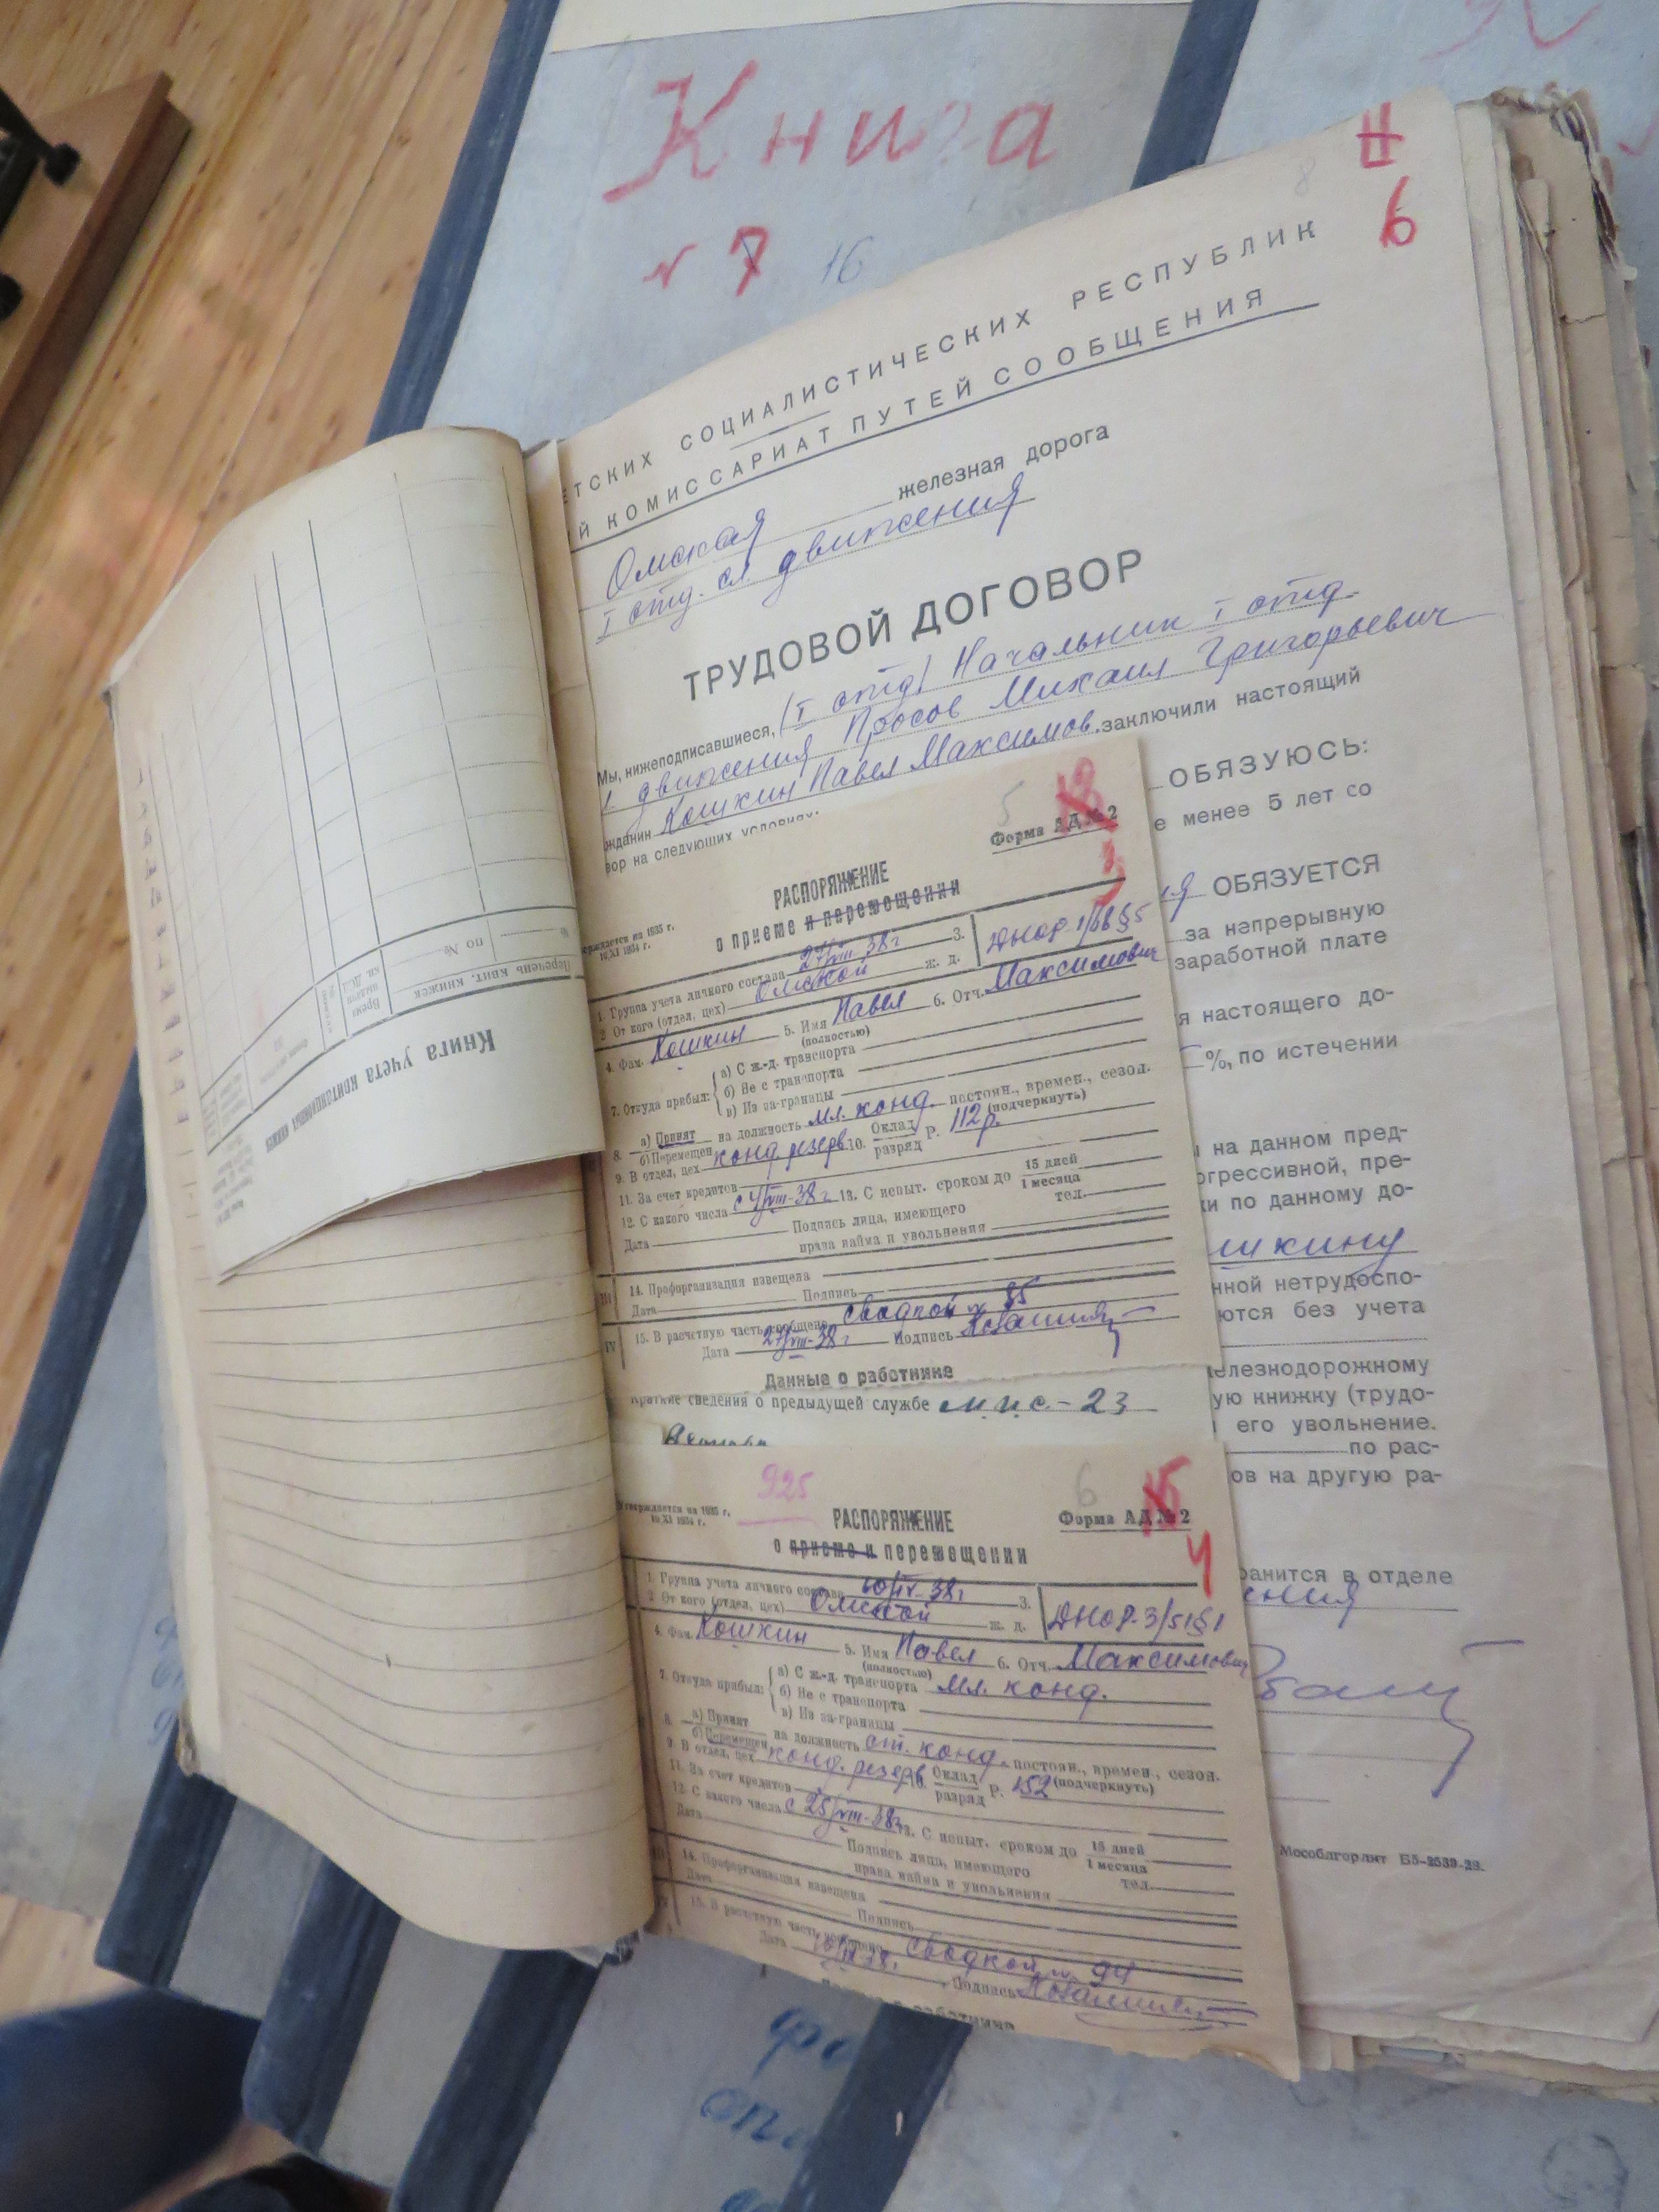 Книга
№ 7 16
8
6
ЕТСКИХ СОЦИАЛИСТИЧЕСКИХ РЕСПУБЛИК
Й КОМИССАРИАТ ПУТЕЙ СООБЩЕНИЯ
Омская железная дорога
I отд. сл. движения
ТРУДОВОЙ ДОГОВОР
Мы, нижеподписавшиеся, (I отд) Начальник I отд.
движения Михаил Григорьевич
жданин Кошкин Павел Максимов. заключили настоящий
вор на следующих условиях:
ОБЯЗУЮСЬ:
е менее 5 лет со
ОБЯЗУЕТСЯ
за непрерывную
заработной плате
я настоящего до-
%, по истечении
на данном пред-
огрессивной, пре-
ки по данному до-
шкину
нной нетрудоспо-
ются без учета
елезнодорожному
ую книжку (трудо-
его увольнение.
по рас-
ов на другую ра-
ранится в отделе
ения
Мособлгорлит Б5-2539-23.
5
Форма АД № 2
РАСПОРЯЖЕНИЕ
о приеме и перемещении
ерждается на 1935 г.
10/XI 1934 г.
1. Группа учета личного состава 27/VIII 38г 3. ДНОР-1/38 §5
2 От кого (отдел, цех) Омской ж. д.
4. Фам. Кошкин 5. Имя Павел 6. Отч. Максимович
(полностью)
7. Откуда прибыл: а) С ж.-д. транспорта
б) Не с транспорта
в) Из за-границы
8. а) Принят на должность мл. конд. постоян., времен., сезон.
б) Перемещен (подчеркнуть)
9. В отдел, цех конд резерв 10. Оклад разряд Р. 112р.
11. За счет кредитов
12. С какого числа с 4/VIII-38г. 13. С испыт. сроком до 15 дней 1 месяца
Дата Подпись лица, имеющего тел.
права найма и увольнения
III 14. Профорганизация извещена
Дата Подпись
IV 15. В расчетную часть сообщено сводкой № 85
Дата 27/VIII-38г Подпись
Данные о работнике
сведения о предыдущей службе м.п.с.-23
925
6
Форма АД № 2
4
тверждается на 1935 г.
10/XI 1934 г.
РАСПОРЯЖЕНИЕ
о приеме и перемещении
1. Группа учета личного состава 10/IX-38г 3. ДНОР-3/51§1
2 От кого (отдел, цех) Омской ж. д.
4. Фам. Кошкин 5. Имя Павел 6. Отч. Максимович
(полностью)
7. Откуда прибыл: а) С ж.-д. транспорта мл. конд.
б) Не с транспорта
в) Из за-границы
8. а) Принят на должность ст. конд. постоян., времен., сезон.
б) Перемещен (подчеркнуть)
9. В отдел, цех конд. резерв 10. Оклад разряд Р. 152
11. За счет кредитов
12. С какого числа с 25/VIII-38г. 13. С испыт. сроком до 15 дней 1 месяца
Дата Подпись лица, имеющего тел.
права найма и увольнения
14. Профорганизация извещена
Дата Подпись
15. В расчетную часть сообщено сводкой № 94
Дата 10/IX 38. Подпись
Книга учета квитанционных книжек
Перечень квит. книжек
Время выдачи
№ по №